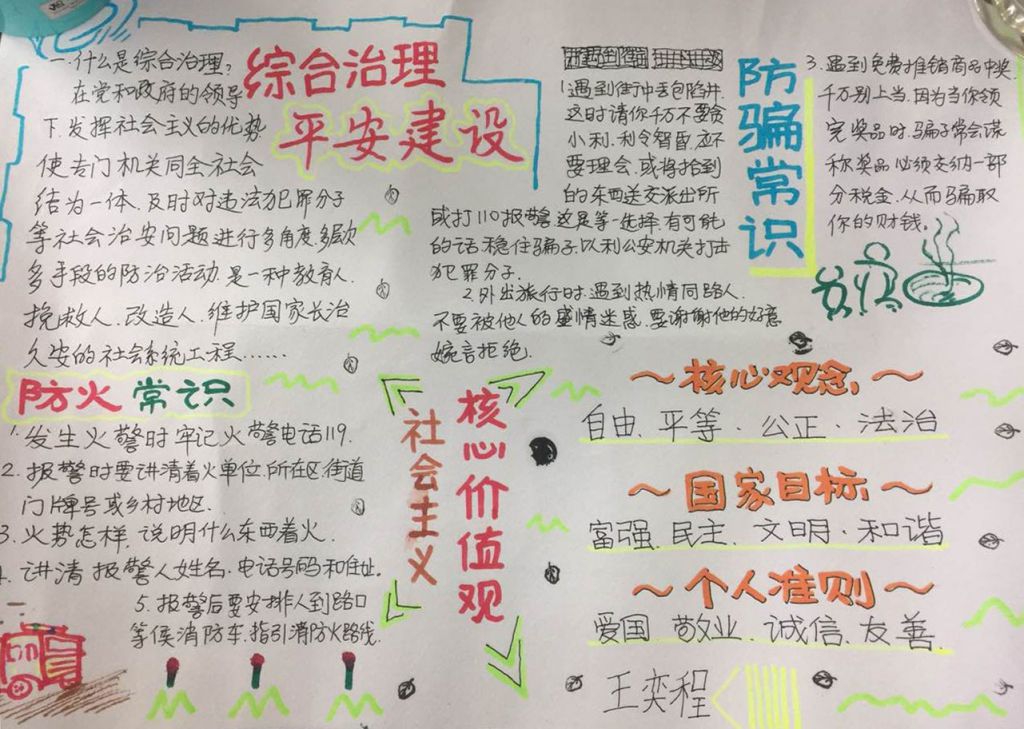 综合治理
平安建设
一.什么是综合治理?
在党和政府的领导
下.发挥社会主义的优势
使专门机关同全社会
结为一体.及时对违法犯罪分子
等社会治安问题进行多角度.多层次
多手段的防治活动.是一种教育人.
挽救人.改造人.维护国家长治
久安的社会系统工程……
防火常识
1.发生火警时牢记火警电话119.
2.报警时要讲清着火单位.所在区街道
门牌号或乡村地区.
3.火势怎样.说明什么东西着火.
4.讲清报警人姓名.电话号码和住址.
5.报警后要安排人到路口
等侯消防车.指引消防火路线.
防骗常识
1.遇到街中丢包陷井.
这时请你千万不要贪
小利.利令智昏.应不
要理会.或将拾到
的东西送交派出所
或打110报警.这是等一选择.有可能
的话稳住骗子.以利公安机关打击
犯罪分子.
2.外出旅行时.遇到热情同路人.
不要被他人的盛情迷惑.要谢谢他的好意
婉言拒绝.
3.遇到免费推销商品中奖.
千万别上当.因为当你领
完奖品时.骗子常会谎
称奖品必须交纳一部
分税金.从而骗取
你的财钱.
社会主义
核心价值观
～核心观念.～
自由.平等.公正.法治
～国家目标～
富强.民主.文明.和谐
～个人准则～
爱国 敬业.诚信.友善.
王奕程